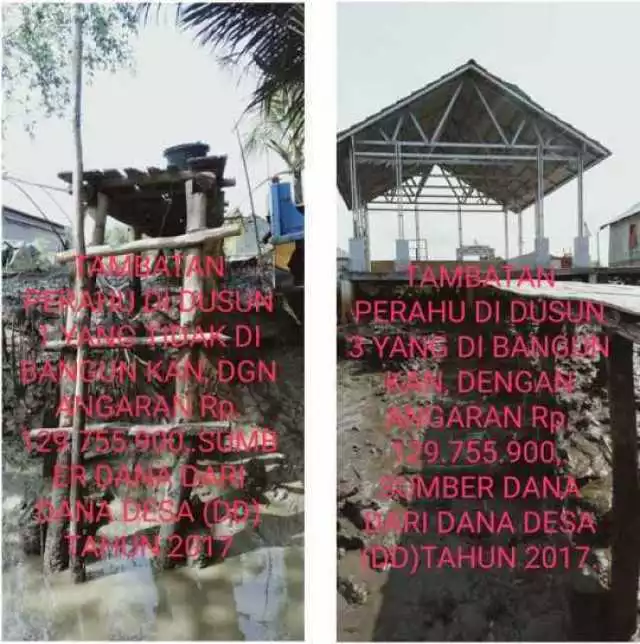 TAMBATAN
PERAHU DI DUSUN
1 YANG TIDAK DI
BANGUN KAN, DGN
ANGARAN Rp.
129.755.900,.SUMB
ER DANA DARI
DANA DESA (DD)
TAHUN 2017
TAMBATAN
PERAHU DI DUSUN
3 YANG DI BANGUN
KAN, DENGAN
ANGARAN Rp.
129.755.900,
SUMBER DANA
DARI DANA DESA
(DD)TAHUN 2017